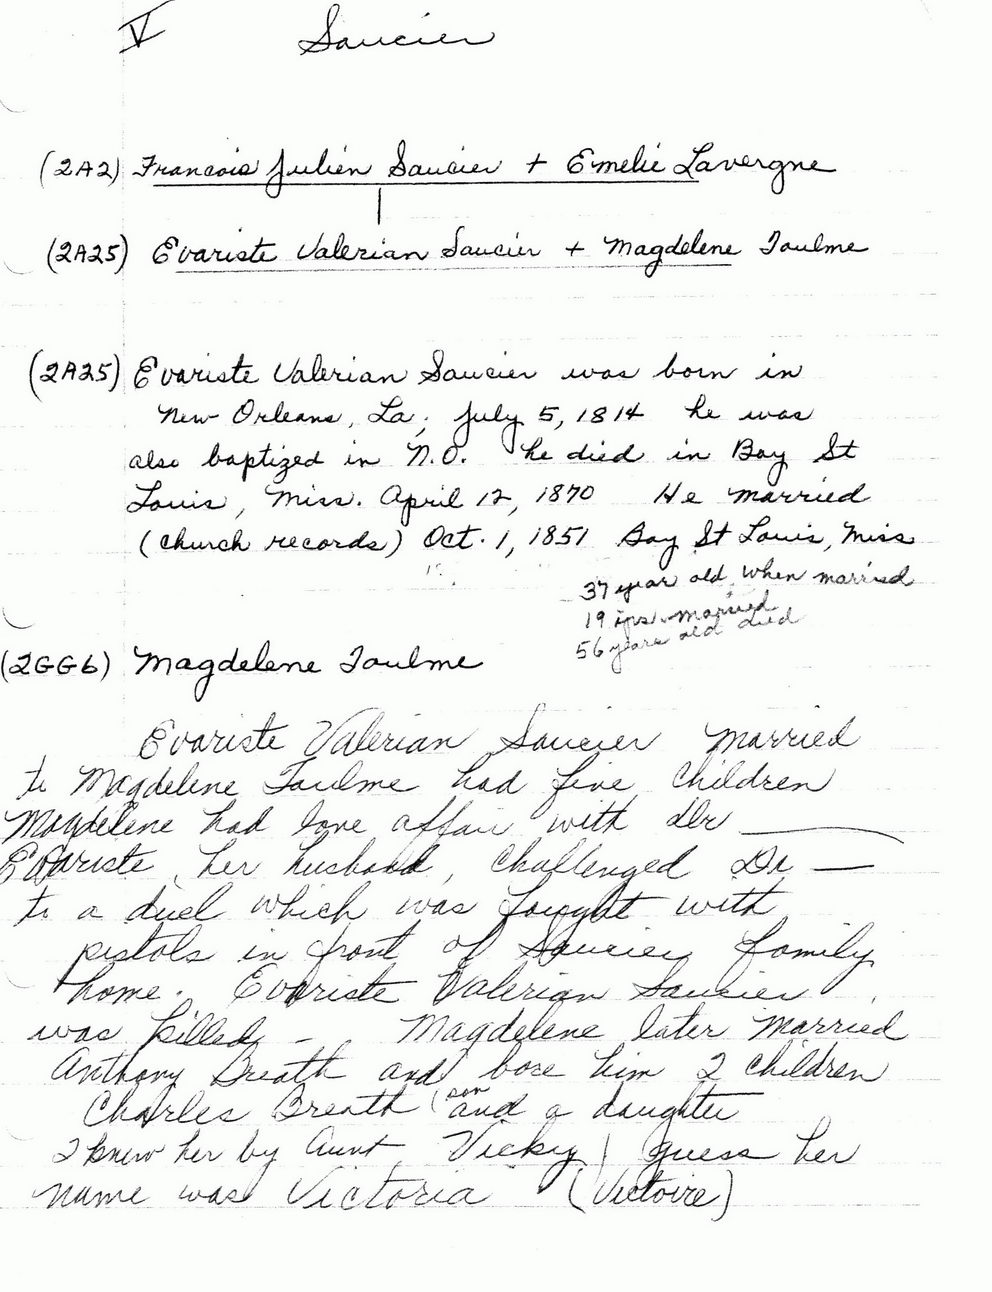 V Saucier
(2A2) Francois Julien Saucier + Emelie Lavergne
(2A25) Evariste Valerian Saucier + Magdelene Toulme
(2A25) Evariste Valerian Saucier was born in
New Orleans, La, July 5, 1814 he was
also baptized in N.O. he died in Bay St
Louis, Miss. April 12, 1870 He married
(church records) Oct. 1, 1851 Bay St Louis, Miss
37 year old when married
19 yrs. married
56 years old died
(2GG6) Magdelene Toulme
Evariste Valerian Saucier married
to Magdelene Toulme had five children
Magdelene had love affair with Dr ___
Evariste, her husband, challenged Dr —
to a duel which was fought with
pistols in front of Saucier family
home. Evariste Valerian Saucier
was killed - Magdelene later married
Anthony Breath and bore him 2 children
Charles Breath (son and a daughter
I knew her by Aunt Vicky I guess her
name was Victoria (Victoire)